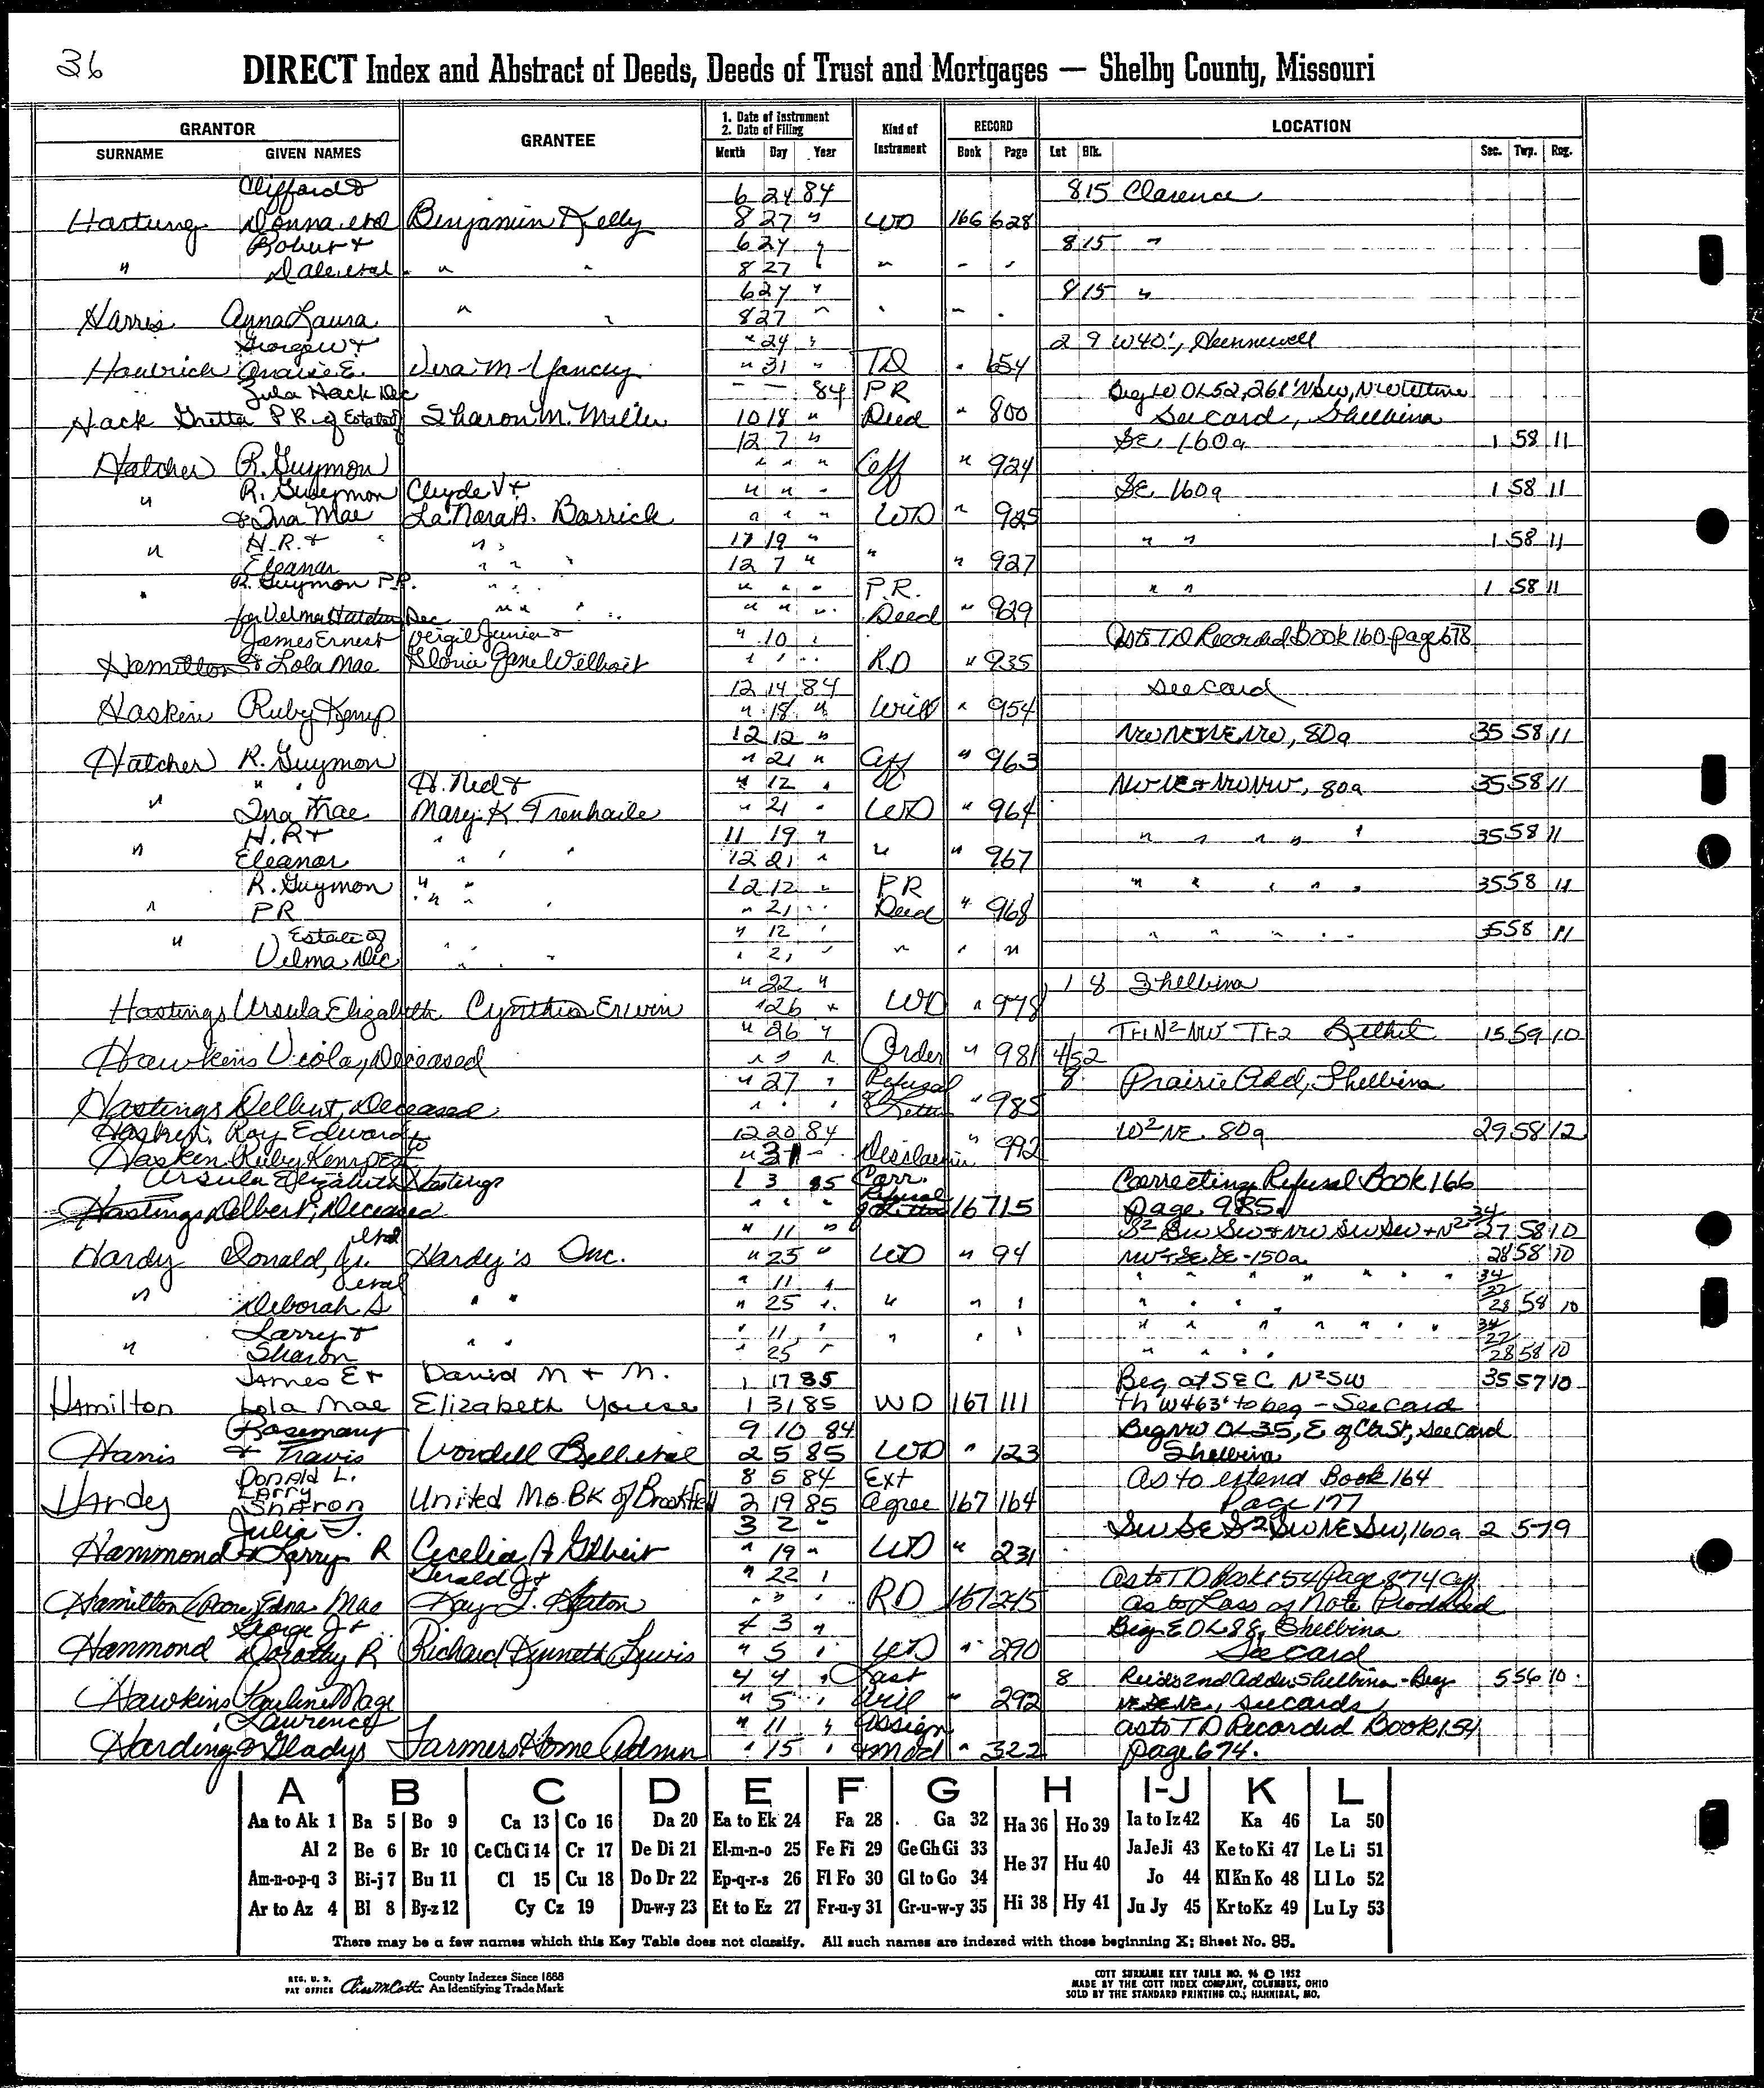 36
DIRECT Index and Abstract of Deeds, Deeds of Trust and Mortgages — Shelby County, Missouri
GRANTOR
SURNAME GIVEN NAMES
GRANTEE
1. Date of Instrument
2. Date of Filing
Month Day Year
Kind of Instrument
RECORD
Book Page
LOCATION
Lot Blk. Sec. Twp. Rng.
Clifford & 6 24 84 8 15 Clarence
Hartung Donna etal Benjamin Kelly 8 27 " WD 166 628
Robert & 6 24 " 8 15 "
" Dale etal " " 8 27 " " " "
6 24 " 8 15 "
Harris Anna Laura " " 8 27 " " " "
George W & " 24 " 2 9 W40', Hunnewell
Vera M Yancey " 31 " TD " 654
Zula Hack Dec — — 84 PR
Hack Gretta P.R. of Estate of Sharon M. Miller 10 18 " Deed " 800 See card, Shelbina
12 7 " SE 160a 1 58 11
Hatcher R. Guymon " " " Aff " 924
" R. Guymon Clyde V & " " " SE 160a 1 58 11
& Ina Mae LaNora A. Barrick " " " WD " 925
" H.R. & " " 19 " " " 1 58 11
Eleanor " " " 12 7 " " " 927
" R. Guymon P.R. " " " " " P.R. " " 1 58 11
for Velma Hatcher Dec " " " " " " Deed " 929
James Ernest Virgil Junior & " 10 " As to TD Recorded Book 160 page 678
Hamilton & Lola Mae Gloria Jane Wilhoit " " " RD " 935
12 14 84 See card
Haskin Ruby Kemp " 18 " Will " 954
12 12 " NW NE & NE NW, 80a 35 58 11
Hatcher R. Guymon " 21 " Aff " 963
" " H. Ned & " 12 " 80a 35 58 11
Ina Mae Mary K Trenhaile " 21 " WD " 964
" H.R & " " " 11 19 " " " " " " 35 58 11
Eleanor " " " 12 21 " " " 967
R. Guymon " " 12 12 " PR " " " " " 35 58 11
" PR " " " " 21 " Deed " 968
" Estate of " 12 " " " " " " 35 58 11
Velma Dec " " " " 21 " " " "
" 22 " 1 8 Shelbina
Hastings Ursula Elizabeth Cynthia Erwin " 26 " WD " 978
" 26 " Tr 1 N² NW Tr 2 Bethel 15 59 10
Hawkins Viola, Deceased " " " Order " 981
" 27 " Refusal 8 Prairie Add, Shelbina
Hastings Delbert, Deceased " " " Letters " 985
Roy Edward to 12 20 84 W² NE 80a 29 58 12
Haskin Ruby Kemp Est " 31 " " 992
Ursula Elizabeth Hastings 1 3 85 Corr. Correcting Refusal Book 166
Hastings Delbert, Deceased " " " Refusal of Letters 167 15 Page 985
etal " 11 " S² SW SW & NW SW SW & N² 34 27 58 10
Hardy Donald, Jr. Hardy's Inc. " 25 " WD " 94 NW & SE SE - 150a 28 58 10
etal " 11 " " " " " " " " 34 27
" Deborah S " " " 25 " " " " " " " " 28 58 10
Larry & " 11 " " " " " " " " 34 27
" Sharon " " " 25 " " " " " " " 28 58 10
James E & David M & M. 1 17 85 Beg at SEC N²SW 35 57 10
Hamilton Lola Mae Elizabeth Youse 1 31 85 WD 167 111 th W463' to beg - See card
Rosemary 9 10 84 Beg NW OL35, E of Ctr St, see card
Harris & Travis Wordell Bell etal 2 5 85 WD " 123 Shelbina
Donald L. 8 5 84 Ext As to extend Book 164
Larry
Hardy Sharon United Mo. BK of Brookfield 2 19 85 Agree 167 164 Page 177
Julia F. 3 2 " SW SE S² SW NE SW, 160a 2 57 9
Hammond & Larry R Cecelia A Gilbert " 19 " WD " 231
Gerald J & " 22 " As to TD Book 154 Page 874 Aff
Hamilton (Poore) Edna Mae Kay L. Eaton " " " RD 167 245 as to Loss of Note Produced
George J & 4 3 " Beg E OL 88, Shelbina
Hammond Dorothy R Richard Kenneth Lewis " 5 " WD " 290 See card
4 4 " Last 8 Reids 2nd Add Shelbina - Beg 5 56 10
Hawkins Pauline Mage " 5 " Will " 292 NE SE NE, see cards
Lawrence " 11 " Assign as to TD Recorded Book 154
Harding & Gladys Farmers Home Admn " 15 " & Mod " 322 page 674.
A B C D E F G H I-J K L
Aa to Ak 1 Ba 5 Bo 9 Ca 13 Co 16 Da 20 Ea to Ek 24 Fa 28 Ga 32 Ha 36 Ho 39 Ia to Iz 42 Ka 46 La 50
Al 2 Be 6 Br 10 Ce Ch Ci 14 Cr 17 De Di 21 El-m-n-o 25 Fe Fi 29 Ge Gh Gi 33 He 37 Hu 40 Ja Je Ji 43 Ke to Ki 47 Le Li 51
Am-n-o-p-q 3 Bi-j 7 Bu 11 Cl 15 Cu 18 Do Dr 22 Ep-q-r-s 26 Fl Fo 30 Gl to Go 34 Jo 44 Kl Kn Ko 48 Ll Lo 52
Ar to Az 4 Bl 8 By-z 12 Cy Cz 19 Du-w-y 23 Et to Ez 27 Fr-u-y 31 Gr-u-w-y 35 Hi 38 Hy 41 Ju Jy 45 Kr to Kz 49 Lu Ly 53
There may be a few names which this Key Table does not classify. All such names are indexed with those beginning X; Sheet No. 95.
REG. U. S. PAT OFFICE
County Indexes Since 1888
An Identifying Trade Mark
COTT SURNAME KEY TABLE NO. 96 © 1952
MADE BY THE COTT INDEX COMPANY, COLUMBUS, OHIO
SOLD BY THE STANDARD PRINTING CO.; HANNIBAL, MO.